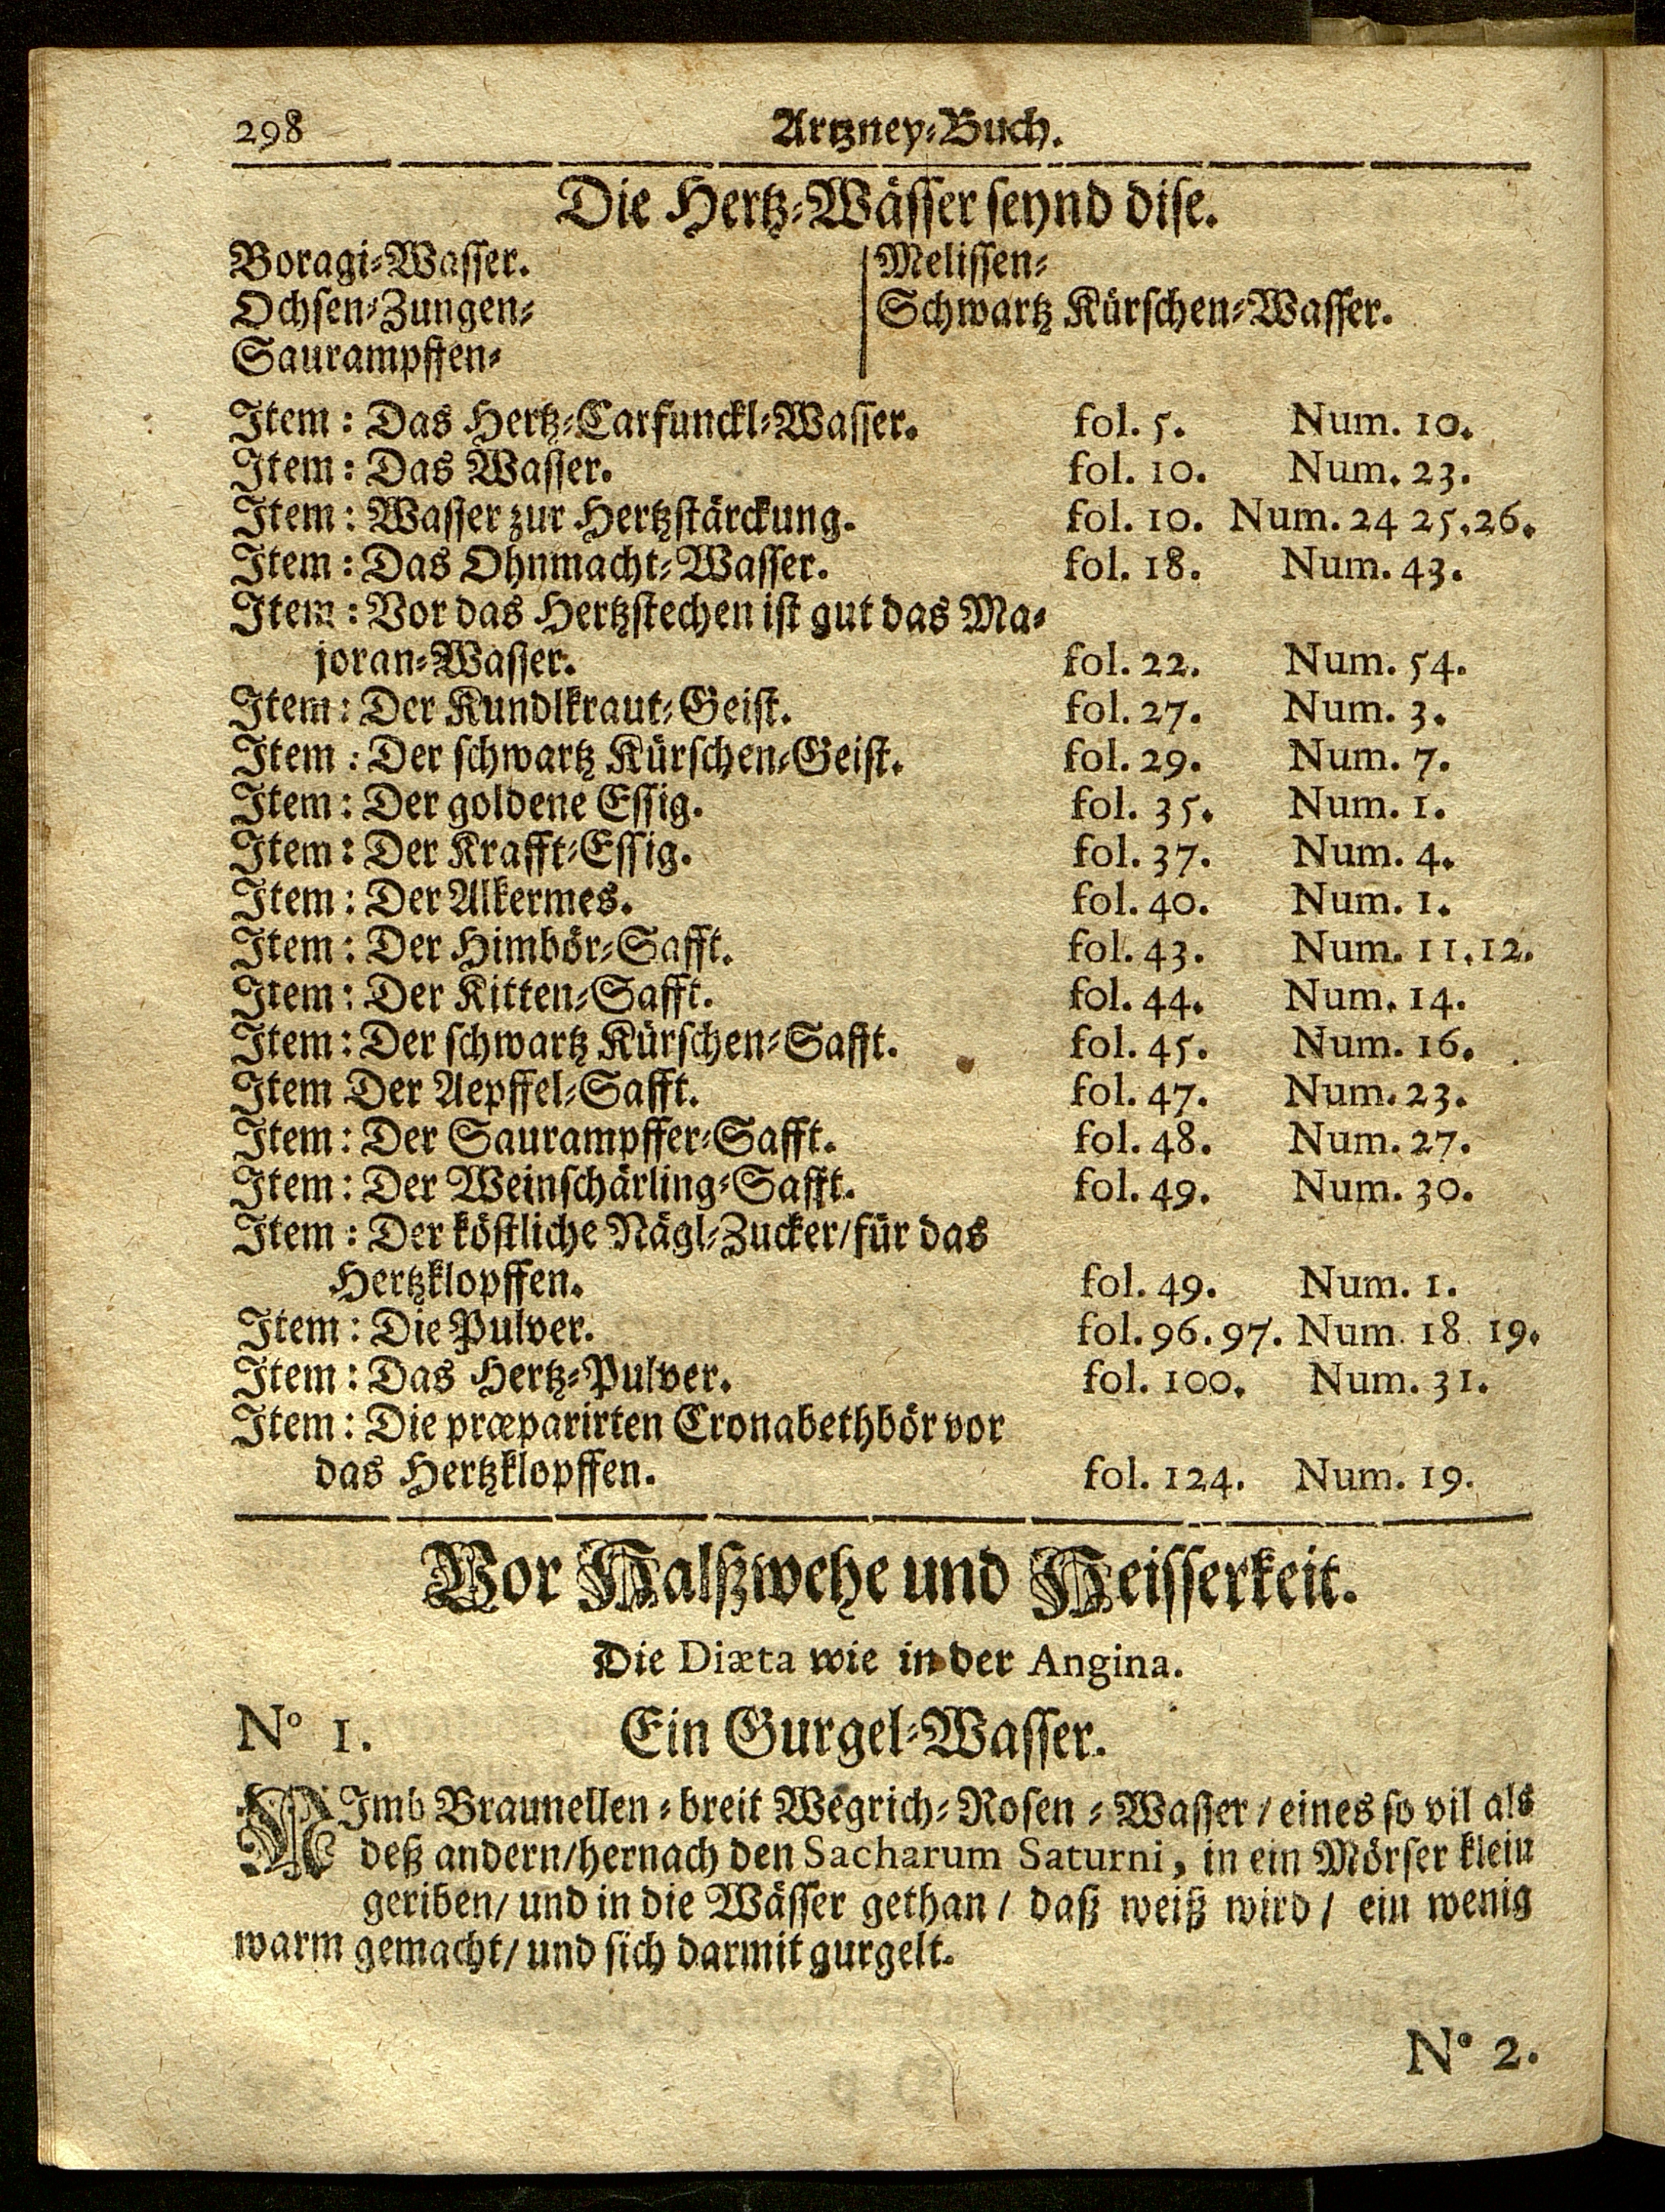 298 Artzney-Buch.
Die Hertz-Wässer seynd dise.
Boragi-Wasser.
Ochsen-Zungen-
Saurampffen-
Melissen-
Schwartz Kürschen-Wasser.
Item: Das Hertz-Carfunckl-Wasser. fol. 5. Num. 10.
Item: Das Wasser. fol. 10. Num. 23.
Item: Wasser zur Hertzstärckung. fol. 10. Num. 24 25.26.
Item: Das Ohnmacht-Wasser. fol. 18. Num. 43.
Item: Vor das Hertzstechen ist gut das Ma-
joran-Wasser. fol. 22. Num. 54.
Item: Der Kundlkraut-Geist. fol. 27. Num. 3.
Item: Der schwartz Kürschen-Geist. fol. 29. Num. 7.
Item: Der goldene Essig. fol. 35. Num. 1.
Item: Der Krafft-Essig. fol. 37. Num. 4.
Item: Der Alkermes. fol. 40. Num. 1.
Item: Der Himbör-Safft. fol. 43. Num. 11.12.
Item: Der Kitten-Safft. fol. 44. Num. 14.
Item: Der schwartz Kürschen-Safft. fol. 45. Num. 16.
Item Der Aepffel-Safft. fol. 47. Num. 23.
Item: Der Saurampffer-Safft. fol. 48. Num. 27.
Item: Der Weinschärling-Safft. fol. 49. Num. 30.
Item: Der köstliche Nägl-Zucker/für das
Hertzklopffen. fol. 49. Num. 1.
Item: Die Pulver. fol. 96.97. Num. 18 19.
Item: Das Hertz-Pulver. fol. 100. Num. 31.
Item: Die præparirten Cronabethbör vor
das Hertzklopffen. fol. 124. Num. 19.
Vor Halßwehe und Heisserkeit.
Die Diæta wie in der Angina.
N° 1. Ein Gurgel-Wasser.
NImb Braunellen-breit Wegrich-Rosen-Wasser/eines so vil als
deß andern/hernach den Sacharum Saturni, in ein Mörser klein
geriben/ und in die Wässer gethan/ daß weiß wird/ ein wenig
warm gemacht/ und sich darmit gurgelt.
N° 2.